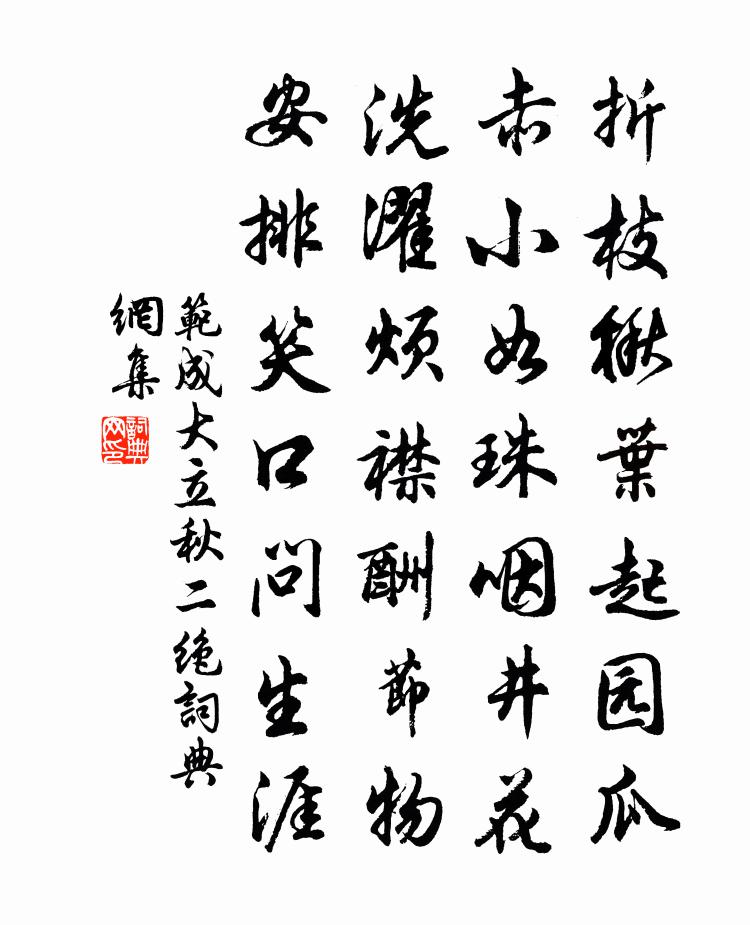 折枝楸葉起园瓜
赤小如珠咽井花
洗濯烦襟酬節物
安排笑口问生涯
範成大立秋二绝詞典
網集
詞典
网印